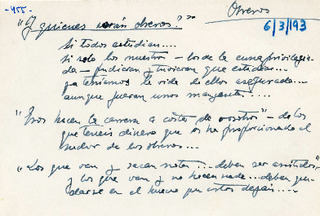 -455-
Obreros
"¿Y quienes serán obreros?"
6/3/193
Si todos estudian....
si solo los nuestros - los de la cuna privilegia
da - pudieran, tuvieran que estudiar...
ya tenemos la vida de ellos asegurada...
aunque fueran unos
"Esos hacen la carrera a costa de vosotros" - de los
que teneis dinero que os ha proporcionado el
sudor de los obreros...
"Los que van y sacan notas... deben ser
y los que van y no hacen nada... deben que-
darse en el hueco que estos dejan....